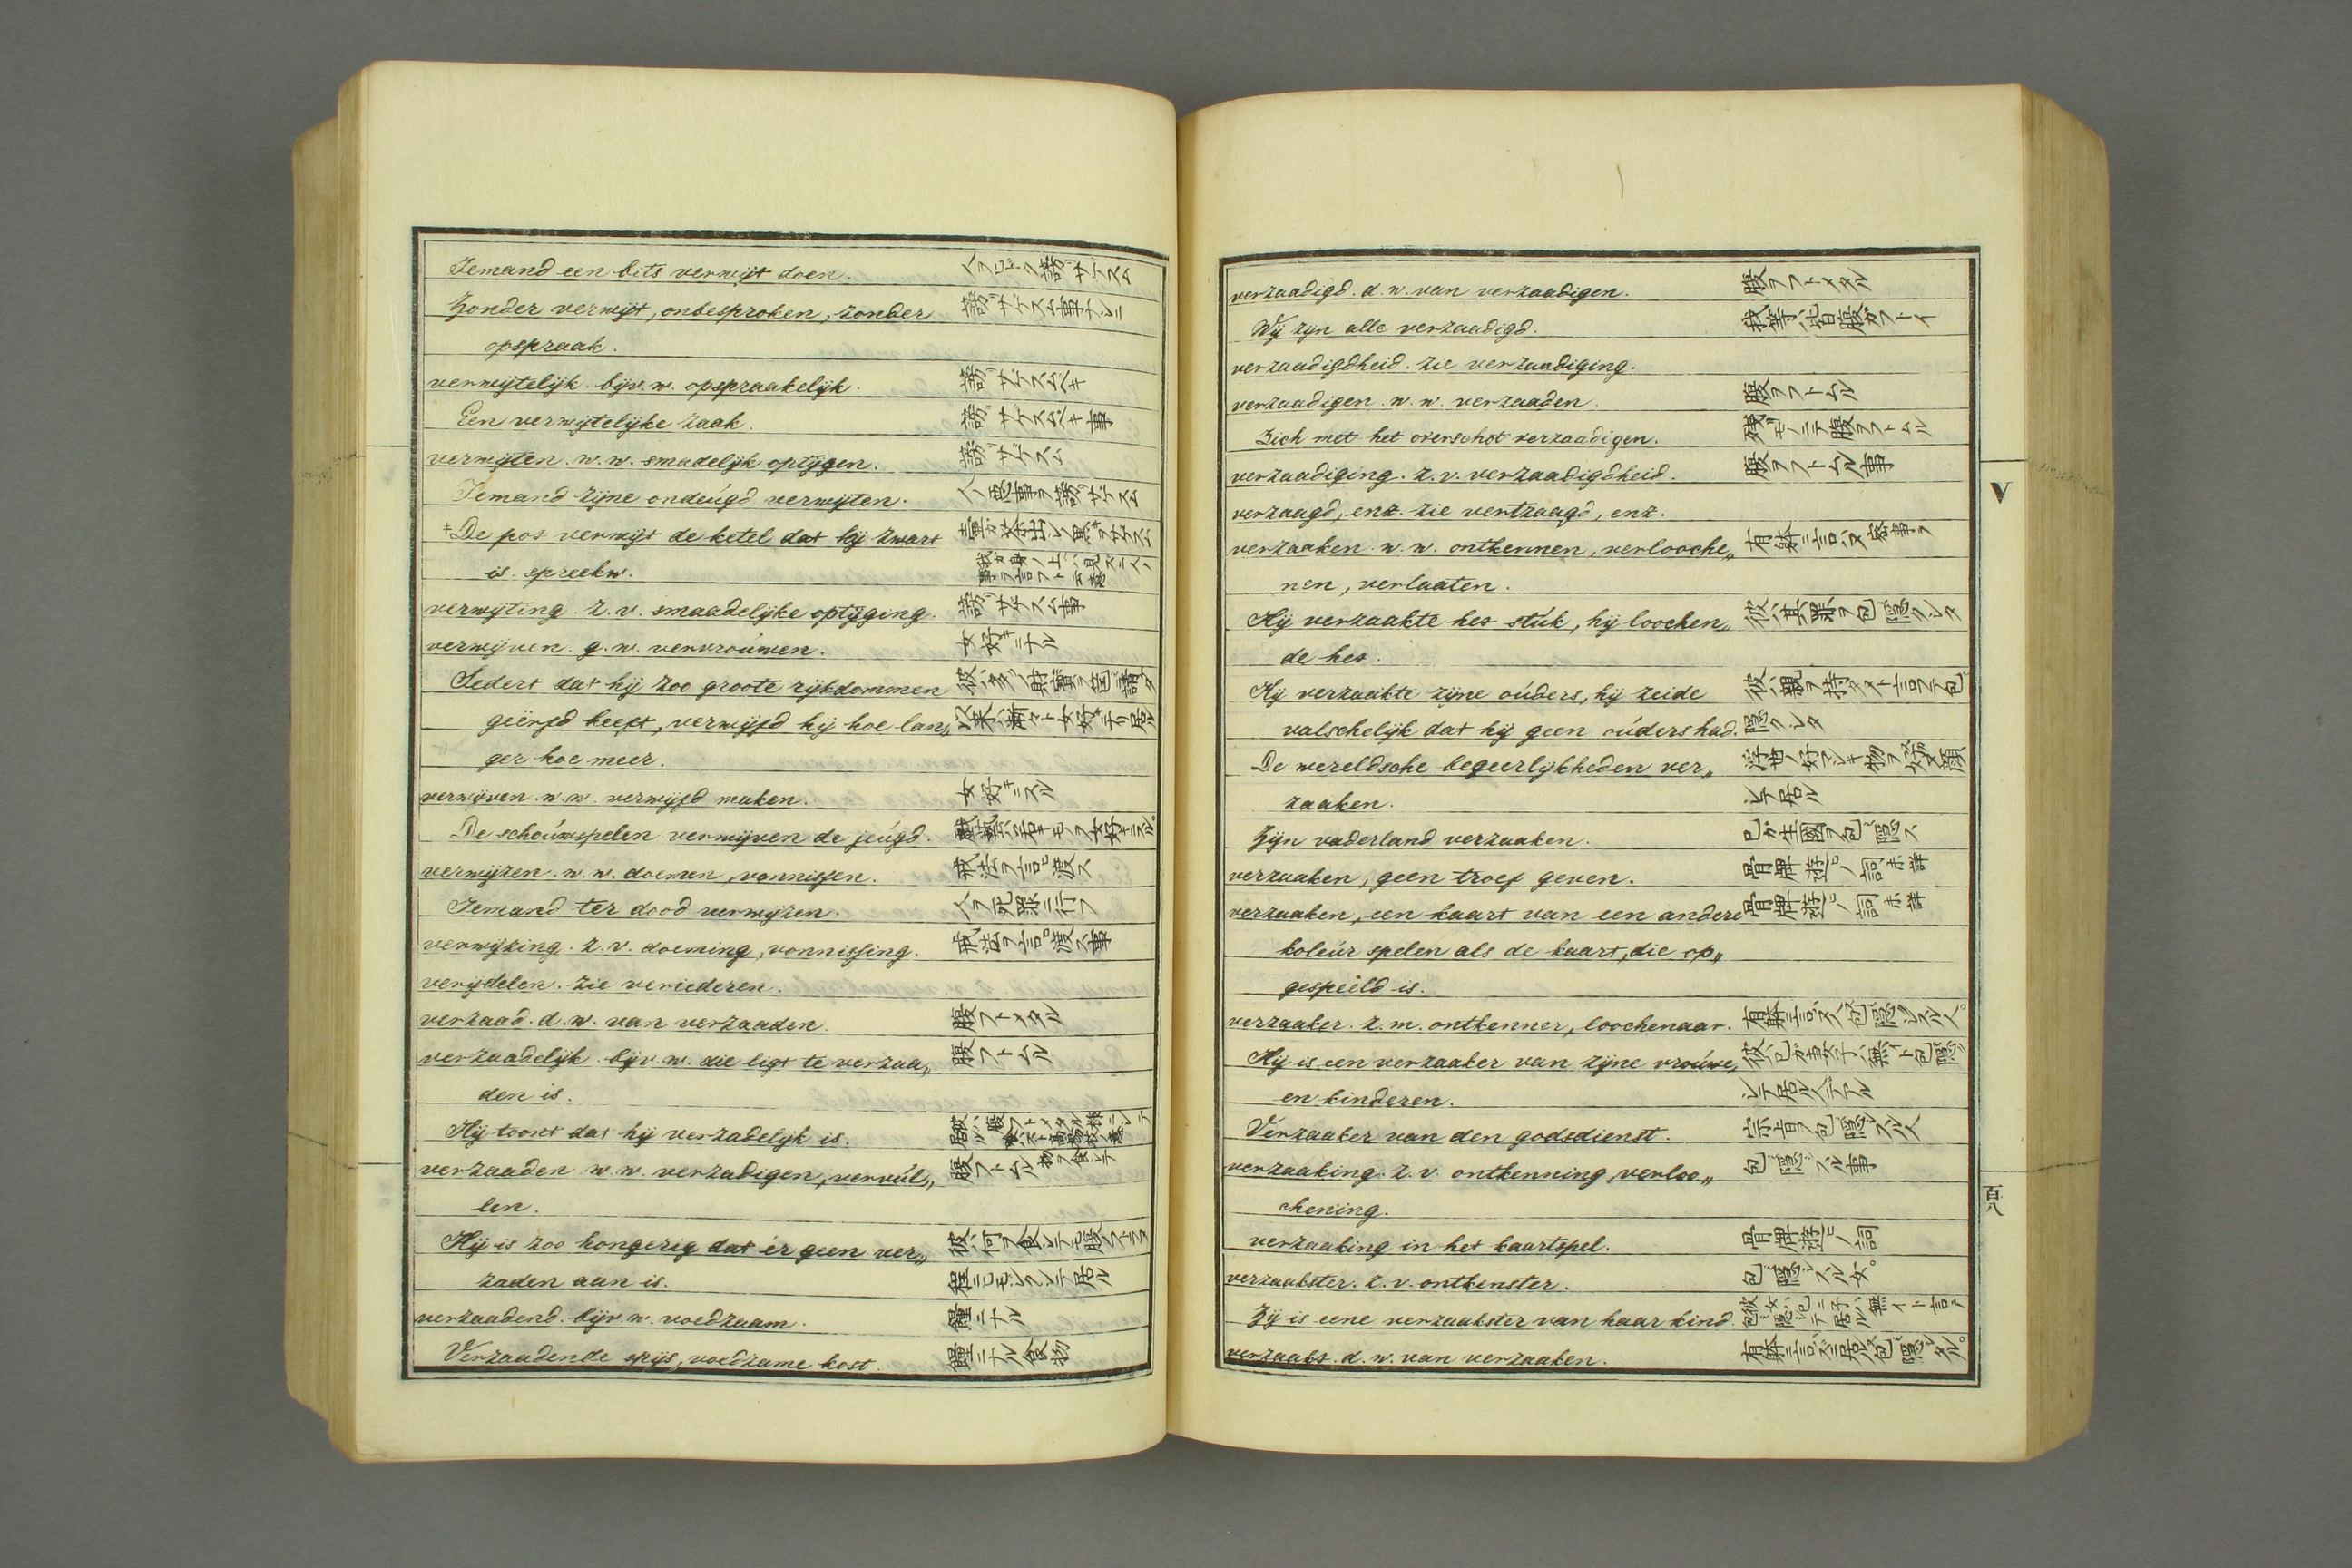 Iemand een bits verwijt doen. 人ヲヒドク謗サゲスム
Zonder verwijt, onbesproken, zonder 謗サゲスム事ナシニ
opspraak.
verwijtelijk. bijv. w. opspraakelijk. 謗サゲスムベキ
Een verwijtelijke zaak. 謗サゲスムベキ事
verwijten. w. w. smadelijk optijgen. 謗サゲスム
Iemand zijne ondeúgd verwijten. 人ノ悪事ヲ謗サゲスム
‡De pot verwijt de ketel dat hij zwart
is. spreekw.
verwijting. z. v. smaadelijke optijging. 謗サゲスム事
verwijven. g. w. vervroúwen. 女好キニナル
Sedert dat hij zoo groote rijkdommen
geërfd heeft, verwijfd hij hoe lan„
ger hoe meer.
verwijven. w. w. verwijfd maken. 女好キニスル
De schoúwspelen verwijven de jeúgd.
verwijzen. w. w. doemen, vonnissen. 刑法ヲ言渡ス
Iemand ter dood verwijzen. 人ヲ死罪ニ行フ
verwijzing. z. v. doeming, vonnissing. 刑法ヲ言渡ス事
verijdelen. zie veriederen.
verzaad. d. w. van verzaaden. 腹フトメタル
verzaadelijk. bijv. w. die ligt te verzaa„ 腹フトムル
den is.
Hij toont dat hij verzadelijk is.
verzaaden w. w. verzadigen, vervúl„ 腹フトムル
len.
Hij is zoo hongerig dat ér geen ver„
zaden aan is.
verzaadend. bijv. w. voedzaam. 糧ニナル
Verzaadende spijs, voedzame kost. 糧ニナル食物
verzaadigd. d. w. van verzaadigen. 腹ヲフトメタル
Wij zijn alle verzaadigd. 我等ハ皆腹ガフトイ
verzaadigdheid. zie verzaadiging.
verzaadigen. w. w. verzaaden. 腹ヲフトムル
Zich met het overschot verzaadigen. 残モノニテ腹ヲフトムル
verzaadiging. z. v. verzaadigdheid. 腹ヲフトムル事
verzaagd, enz. zie vertzaagd, enz.
verzaaken. w. w. ontkennen, verlooche„
nen, verlaaten.
Hij verzaakte het stúk, hij loochen„ 彼ハ其罪ヲ包隠クシタ
de het.
Hij verzaakte zijne oúders, hij zeide
valschelijk dat hij geen oúders had. 隠クシタ
De wereldsche begeerlijkheden ver„
zaaken. シテ居ル
Zijn vaderland verzaaken. 己ガ生國ヲ包隠ス
verzaaken, geen troef geven. 骨牌遊ビノ詞未詳
verzaaken, een kaart van een andere 骨牌遊ビノ詞未詳
koleúr spelen als de kaart, die op„
gespeeld is.
verzaaker. z. m. ontkenner, loochenaar.
Hij is een verzaaker van zijne vroúwe,
en kinderen. シテ居ル人デアル
Verzaaker van den godsdienst. 宗旨ヲ包隠シスル人
verzaaking. z. v. ontkenning, verloo„ 包隠シスル事
chening.
verzaaking in het kaartspel. 骨牌遊ビノ詞
verzaakster. z. v. ontkenster. 包隠シスル女。
Zij is eene verzaakster van haar kind.
verzaakt. d. w. van verzaaken.
V
百八